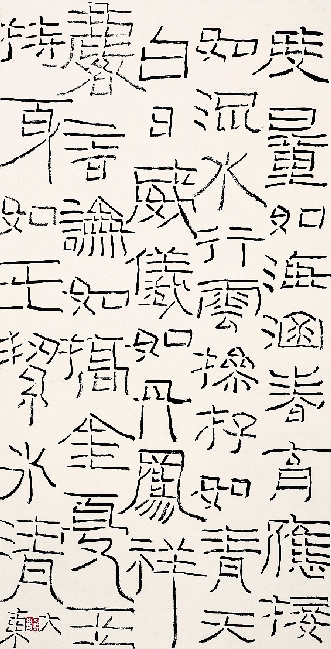 度量如海涵春育應接
如流水行雲操存如青天
白日威儀如丹鳳祥
麐言論如敲金戛玉
持身如玉絜氷清